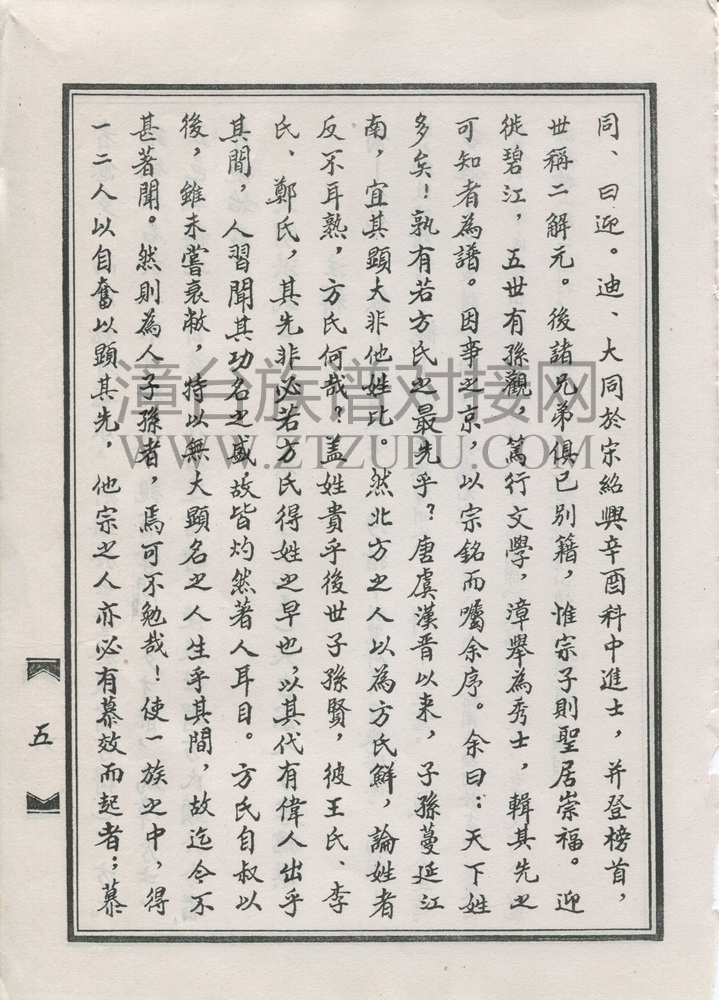 同、曰迎。迪、大同於宋紹興辛酉科中進士，并登榜首，
世稱二解元。後諸兄弟俱已別籍，惟宗子則聖居崇福。迎
徙碧江，五世有孫觀，篤行文學，漳舉為秀士，輯其先之
可知者為譜。因事之京，以宗銘而囑余序。余曰：天下姓
多矣！孰有若方氏之最先乎？唐虞漢晋以来，子孫蔓延江
南，宜其顕大非他姓比。然北方之人以為方氏鮮，論姓者
反不耳熟，方氏何哉？盖姓貴乎後世子孫賢，彼王氏、李
氏、鄭氏，其先非必若方氏得姓之早也，以其代有偉人出乎
其間，人習聞其功名之盛，故皆灼然著人耳目。方氏自叔以
後，雖未嘗衰敝，特以無大顕名之人生乎其間，故迄今不
甚著聞。然則為人子孫者，焉可不勉哉！使一族之中，得
一二人以自奮以顕其先，他宗之人亦必有慕效而起者；慕
五
漳台族谱对接网
WWW.ZTZUPU.COM